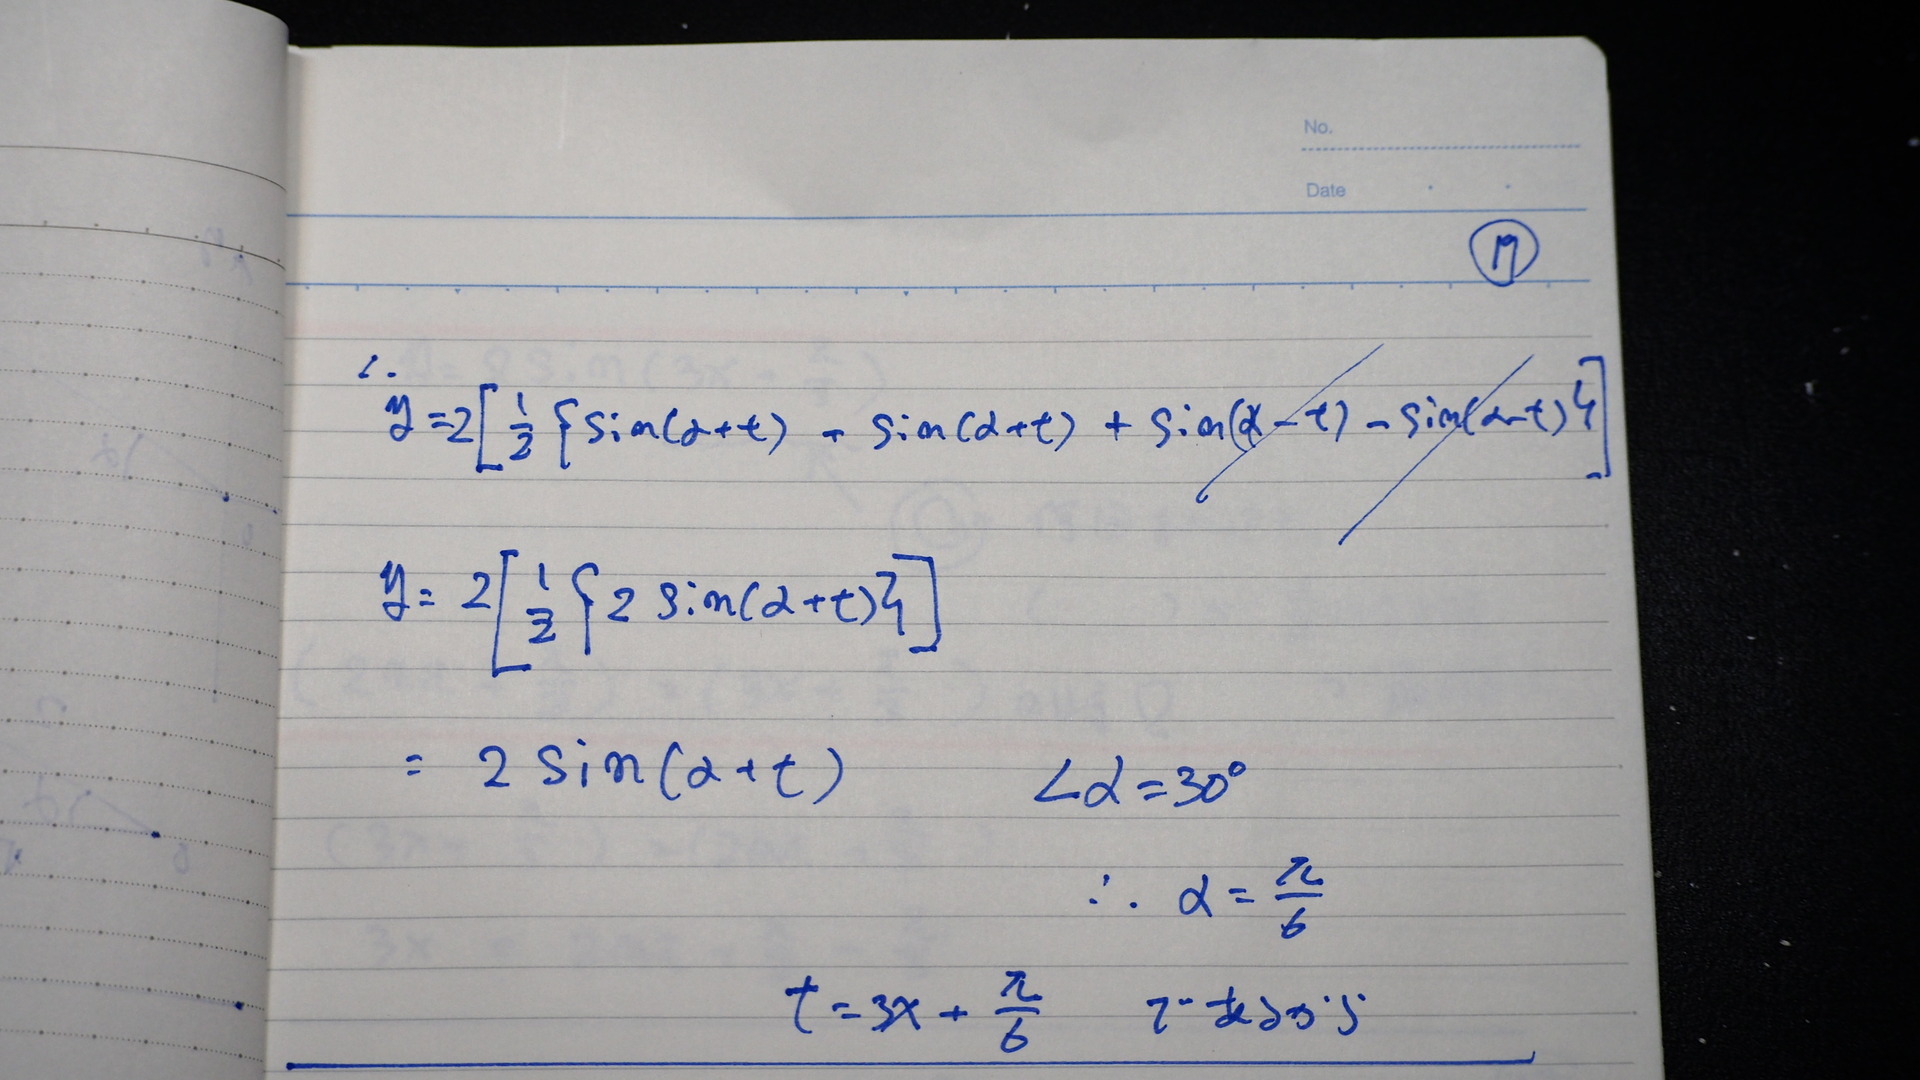 No.
Date
19
∴
y=2[1/2{sin(α+t) + sin(α+t) + sin(α-t) - sin(α-t)}]
y= 2[1/2{2 sin(α+t)}]
= 2 sin(α+t)
∠α=30°
∴ α=π/6
t=3x+π/6